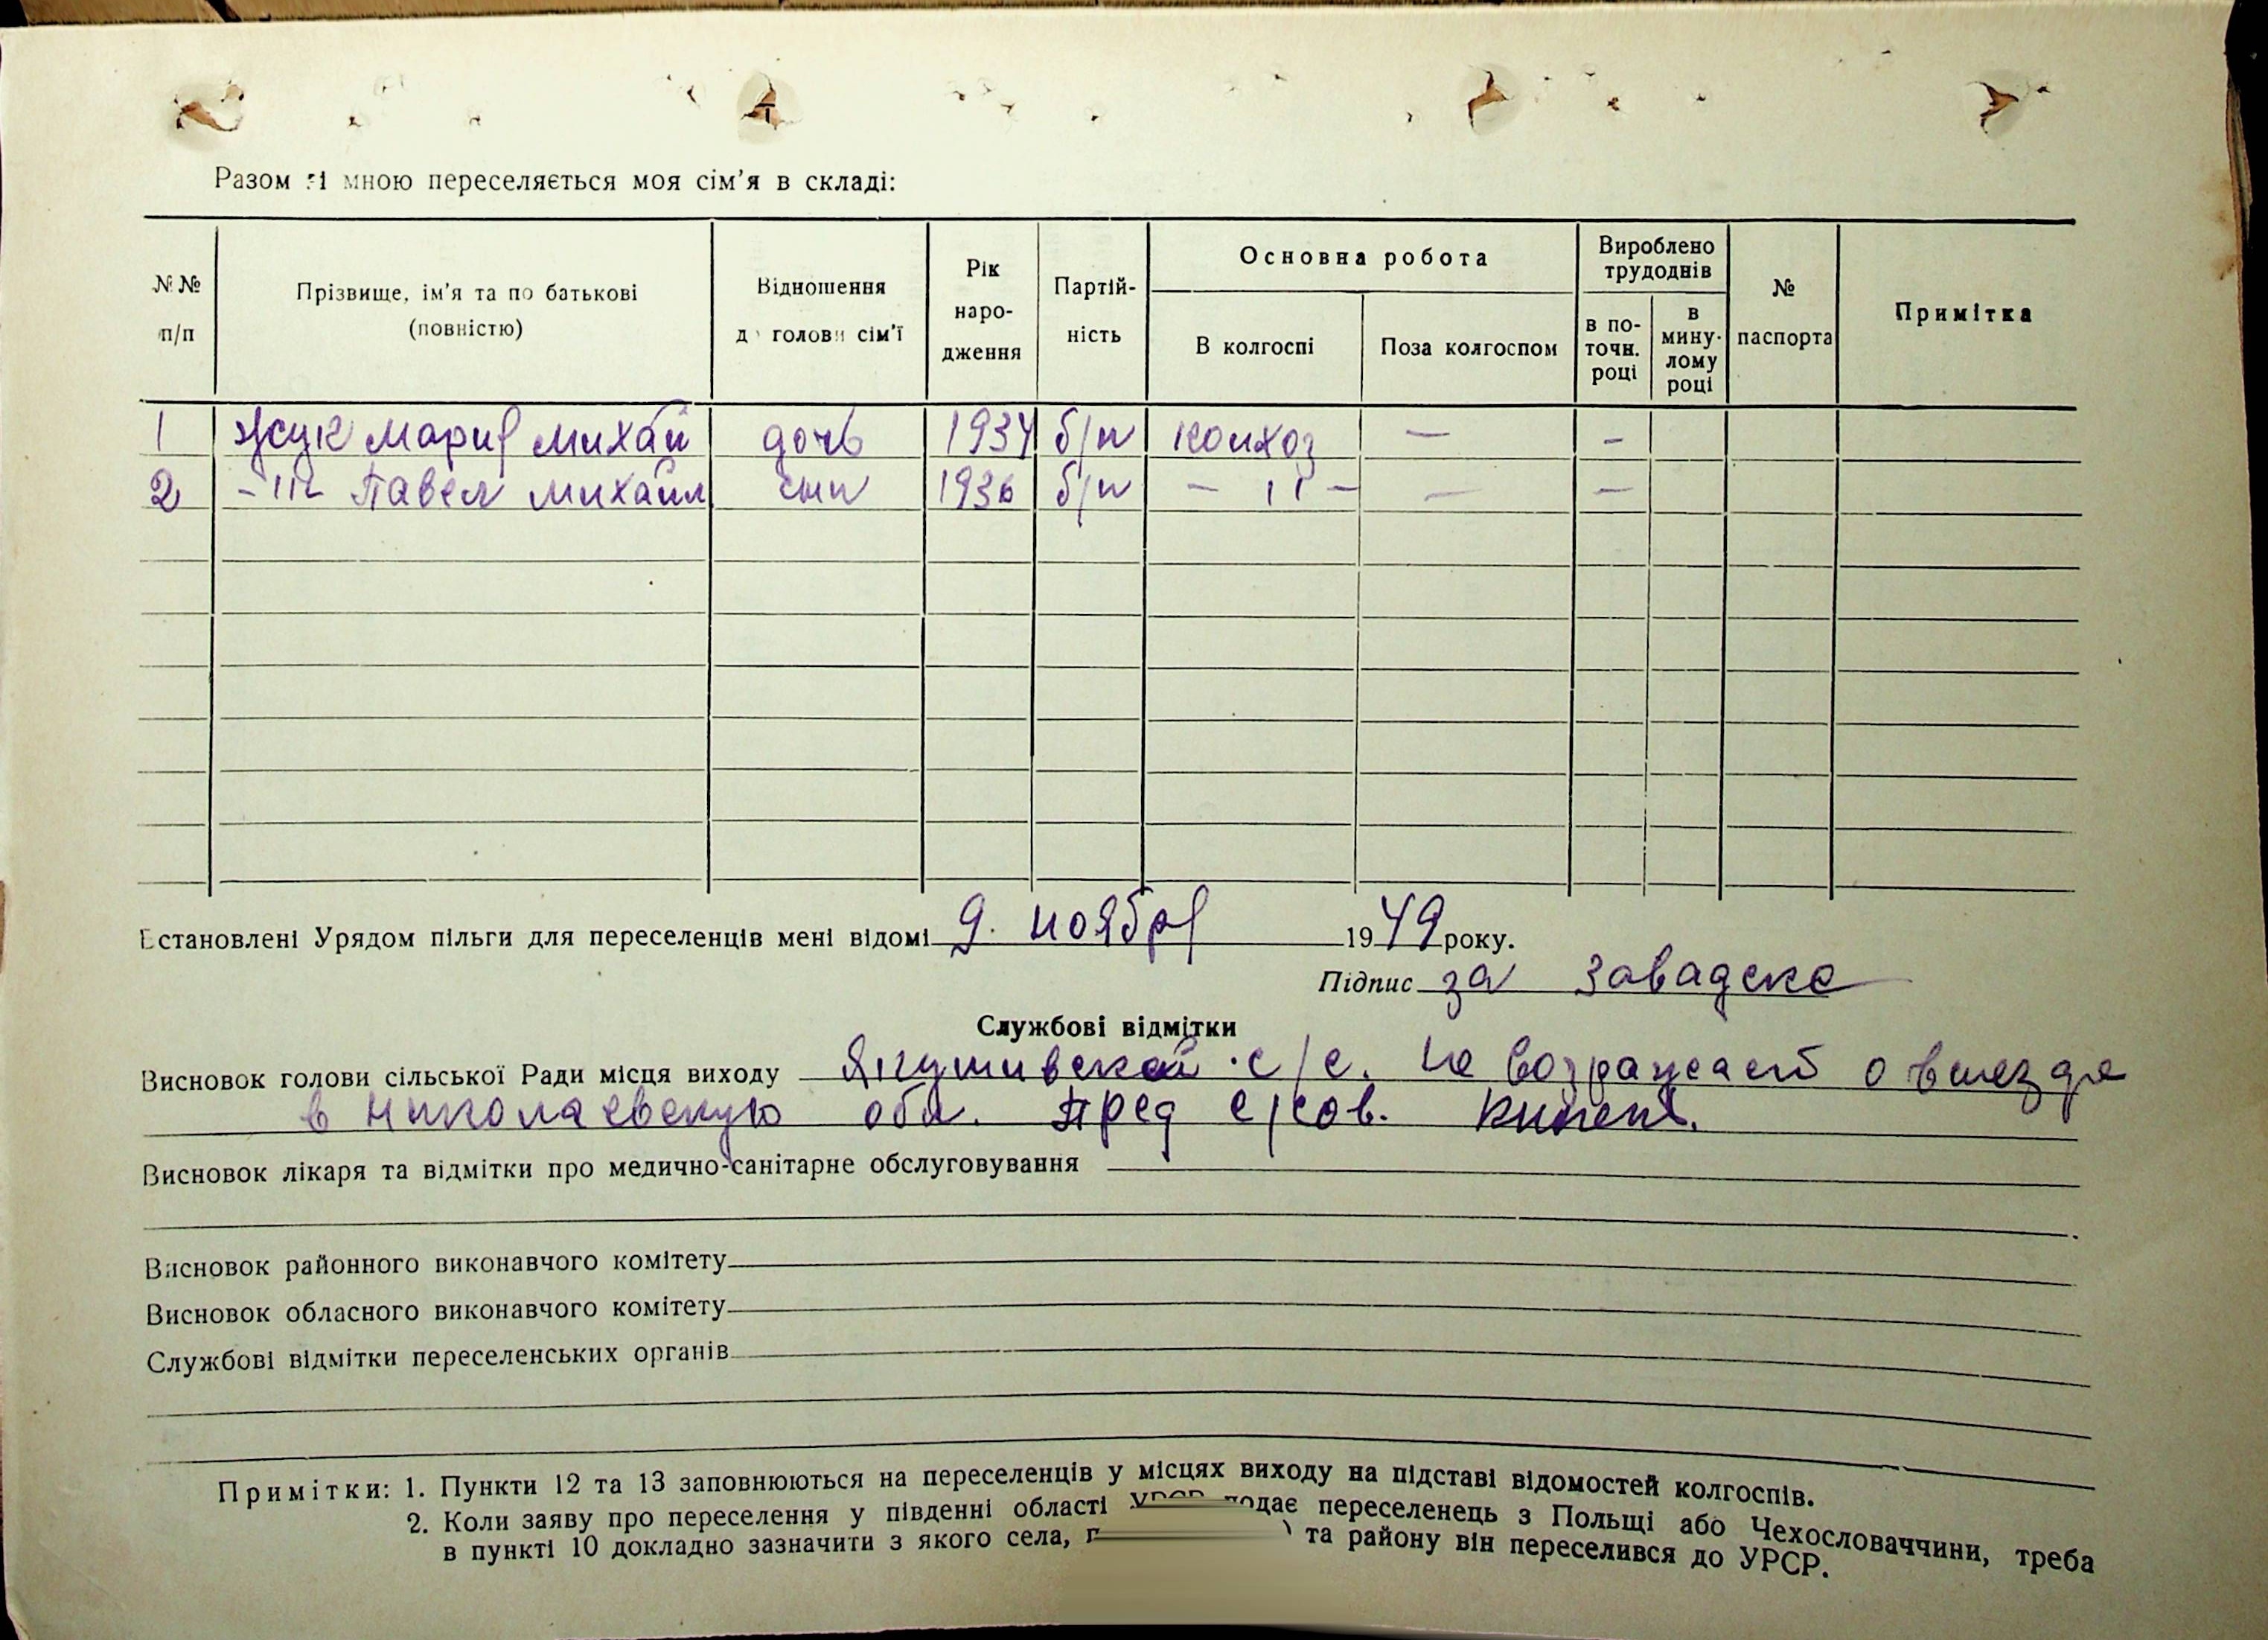 Разом зі мною переселяється моя сім'я в складі:
№№ п/п
Прізвище, ім'я та по батькові (повністю)
Відношення до голови сім'ї
Рік народження
Партійність
Основна робота
В колгоспі
Поза колгоспом
Вироблено трудоднів
в поточн. році
в минулому році
№ паспорта
Примітка
1 Жук Мария Михай дочь 1934 б/п колхоз — –
2 –"– Павел Михайл сын 1936 б/п – " – — —
Встановлені Урядом пільги для переселенців мені відомі 9. ноября 1949 року.
Підпис за Завадск
Службові відмітки
Висновок голови сільської Ради місця виходу с/с. не возражает о выезде
в Николаевскую обл. Пред с/сов.
Висновок лікаря та відмітки про медично-санітарне обслуговування
Висновок районного виконавчого комітету
Висновок обласного виконавчого комітету
Службові відмітки переселенських органів
Примітки: 1. Пункти 12 та 13 заповнюються на переселенців у місцях виходу на підставі відомостей колгоспів.
2. Коли заяву про переселення у південні області УРСР подає переселенець з Польщі або Чехословаччини, треба
в пункті 10 докладно зазначити з якого села, та району він переселився до УРСР.